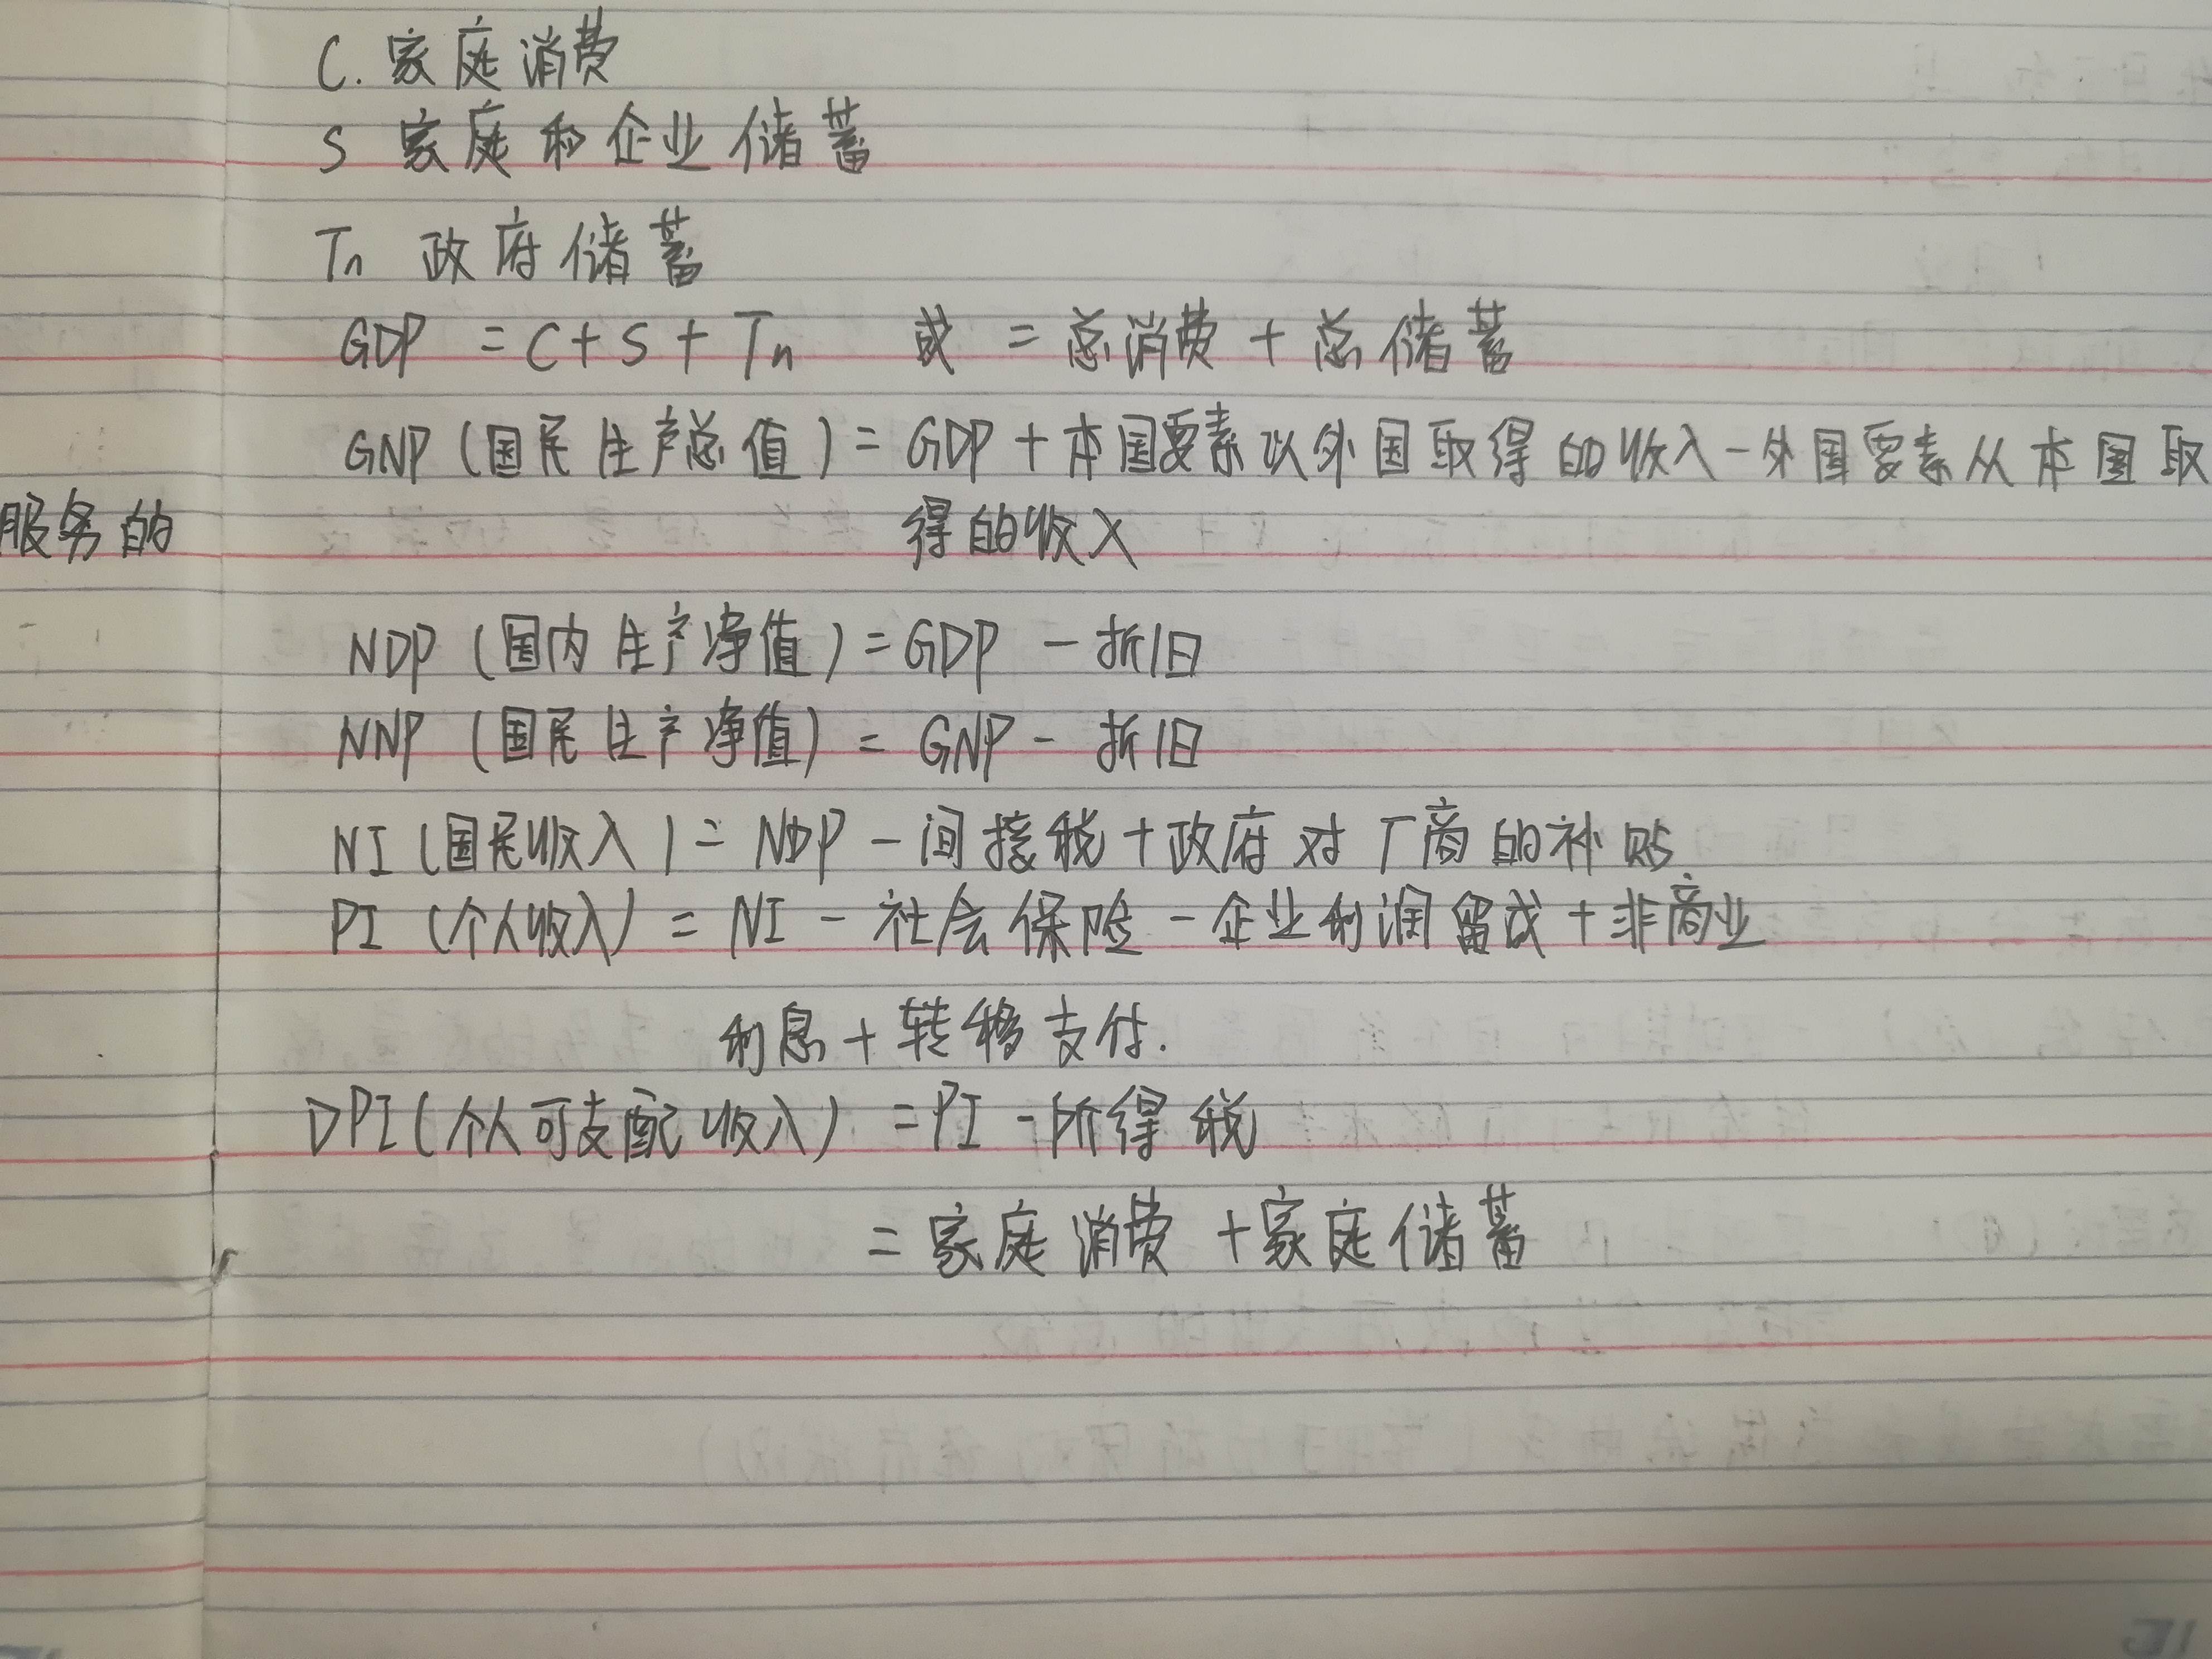 C. 家庭消费
S 家庭和企业储蓄
Tn 政府储蓄
GDP = C + S + Tn 或 = 总消费 + 总储蓄
GNP (国民生产总值) = GDP + 本国要素以外国取得的收入 - 外国要素从本国取
服务的
得的收入
NDP (国内生产净值) = GDP - 折旧
NNP (国民生产净值) = GNP - 折旧
NI (国民收入) = NDP - 间接税 + 政府对厂商的补贴
PI (个人收入) = NI - 社会保险 - 企业利润留成 + 非商业
利息 + 转移支付.
DPI (个人可支配收入) = PI - 所得税
= 家庭消费 + 家庭储蓄